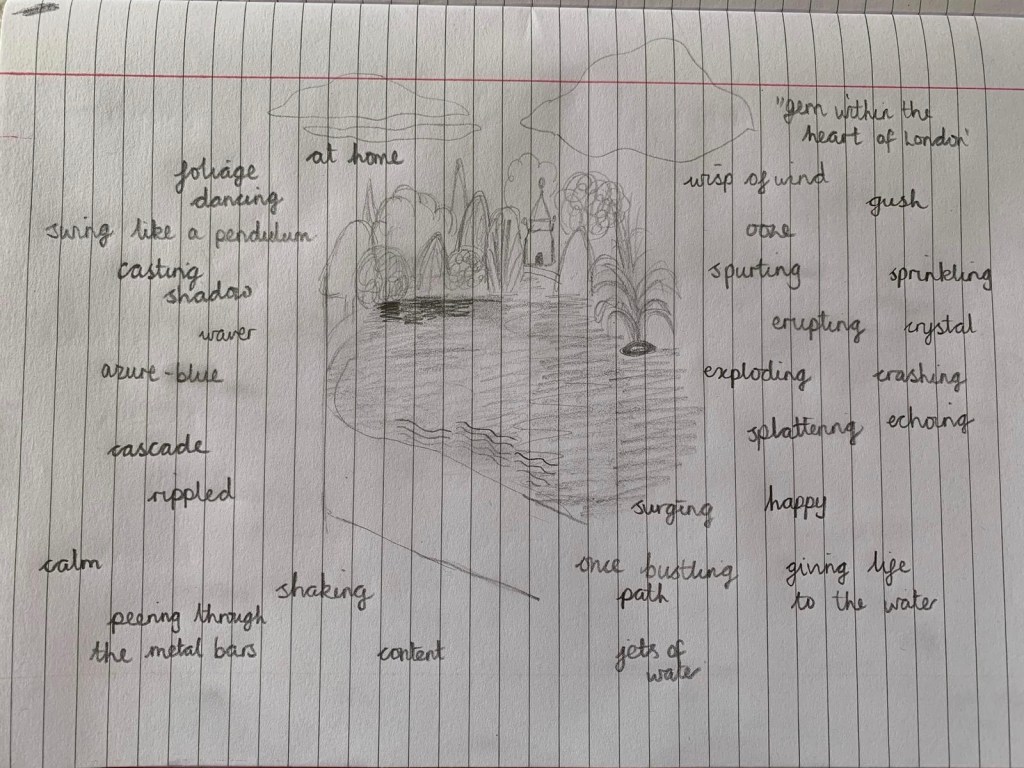 "gem within the
heart of London"
at home
foliage
dancing
wisp of wind
gush
swing like a pendulum
ooze
casting
shadow
spurting
sprinkling
waver
erupting
crystal
azure-blue
exploding
crashing
cascade
splattering
echoing
rippled
surging
happy
calm
once bustling
path
giving life
to the water
shaking
peering through
the metal bars
content
jets of
water